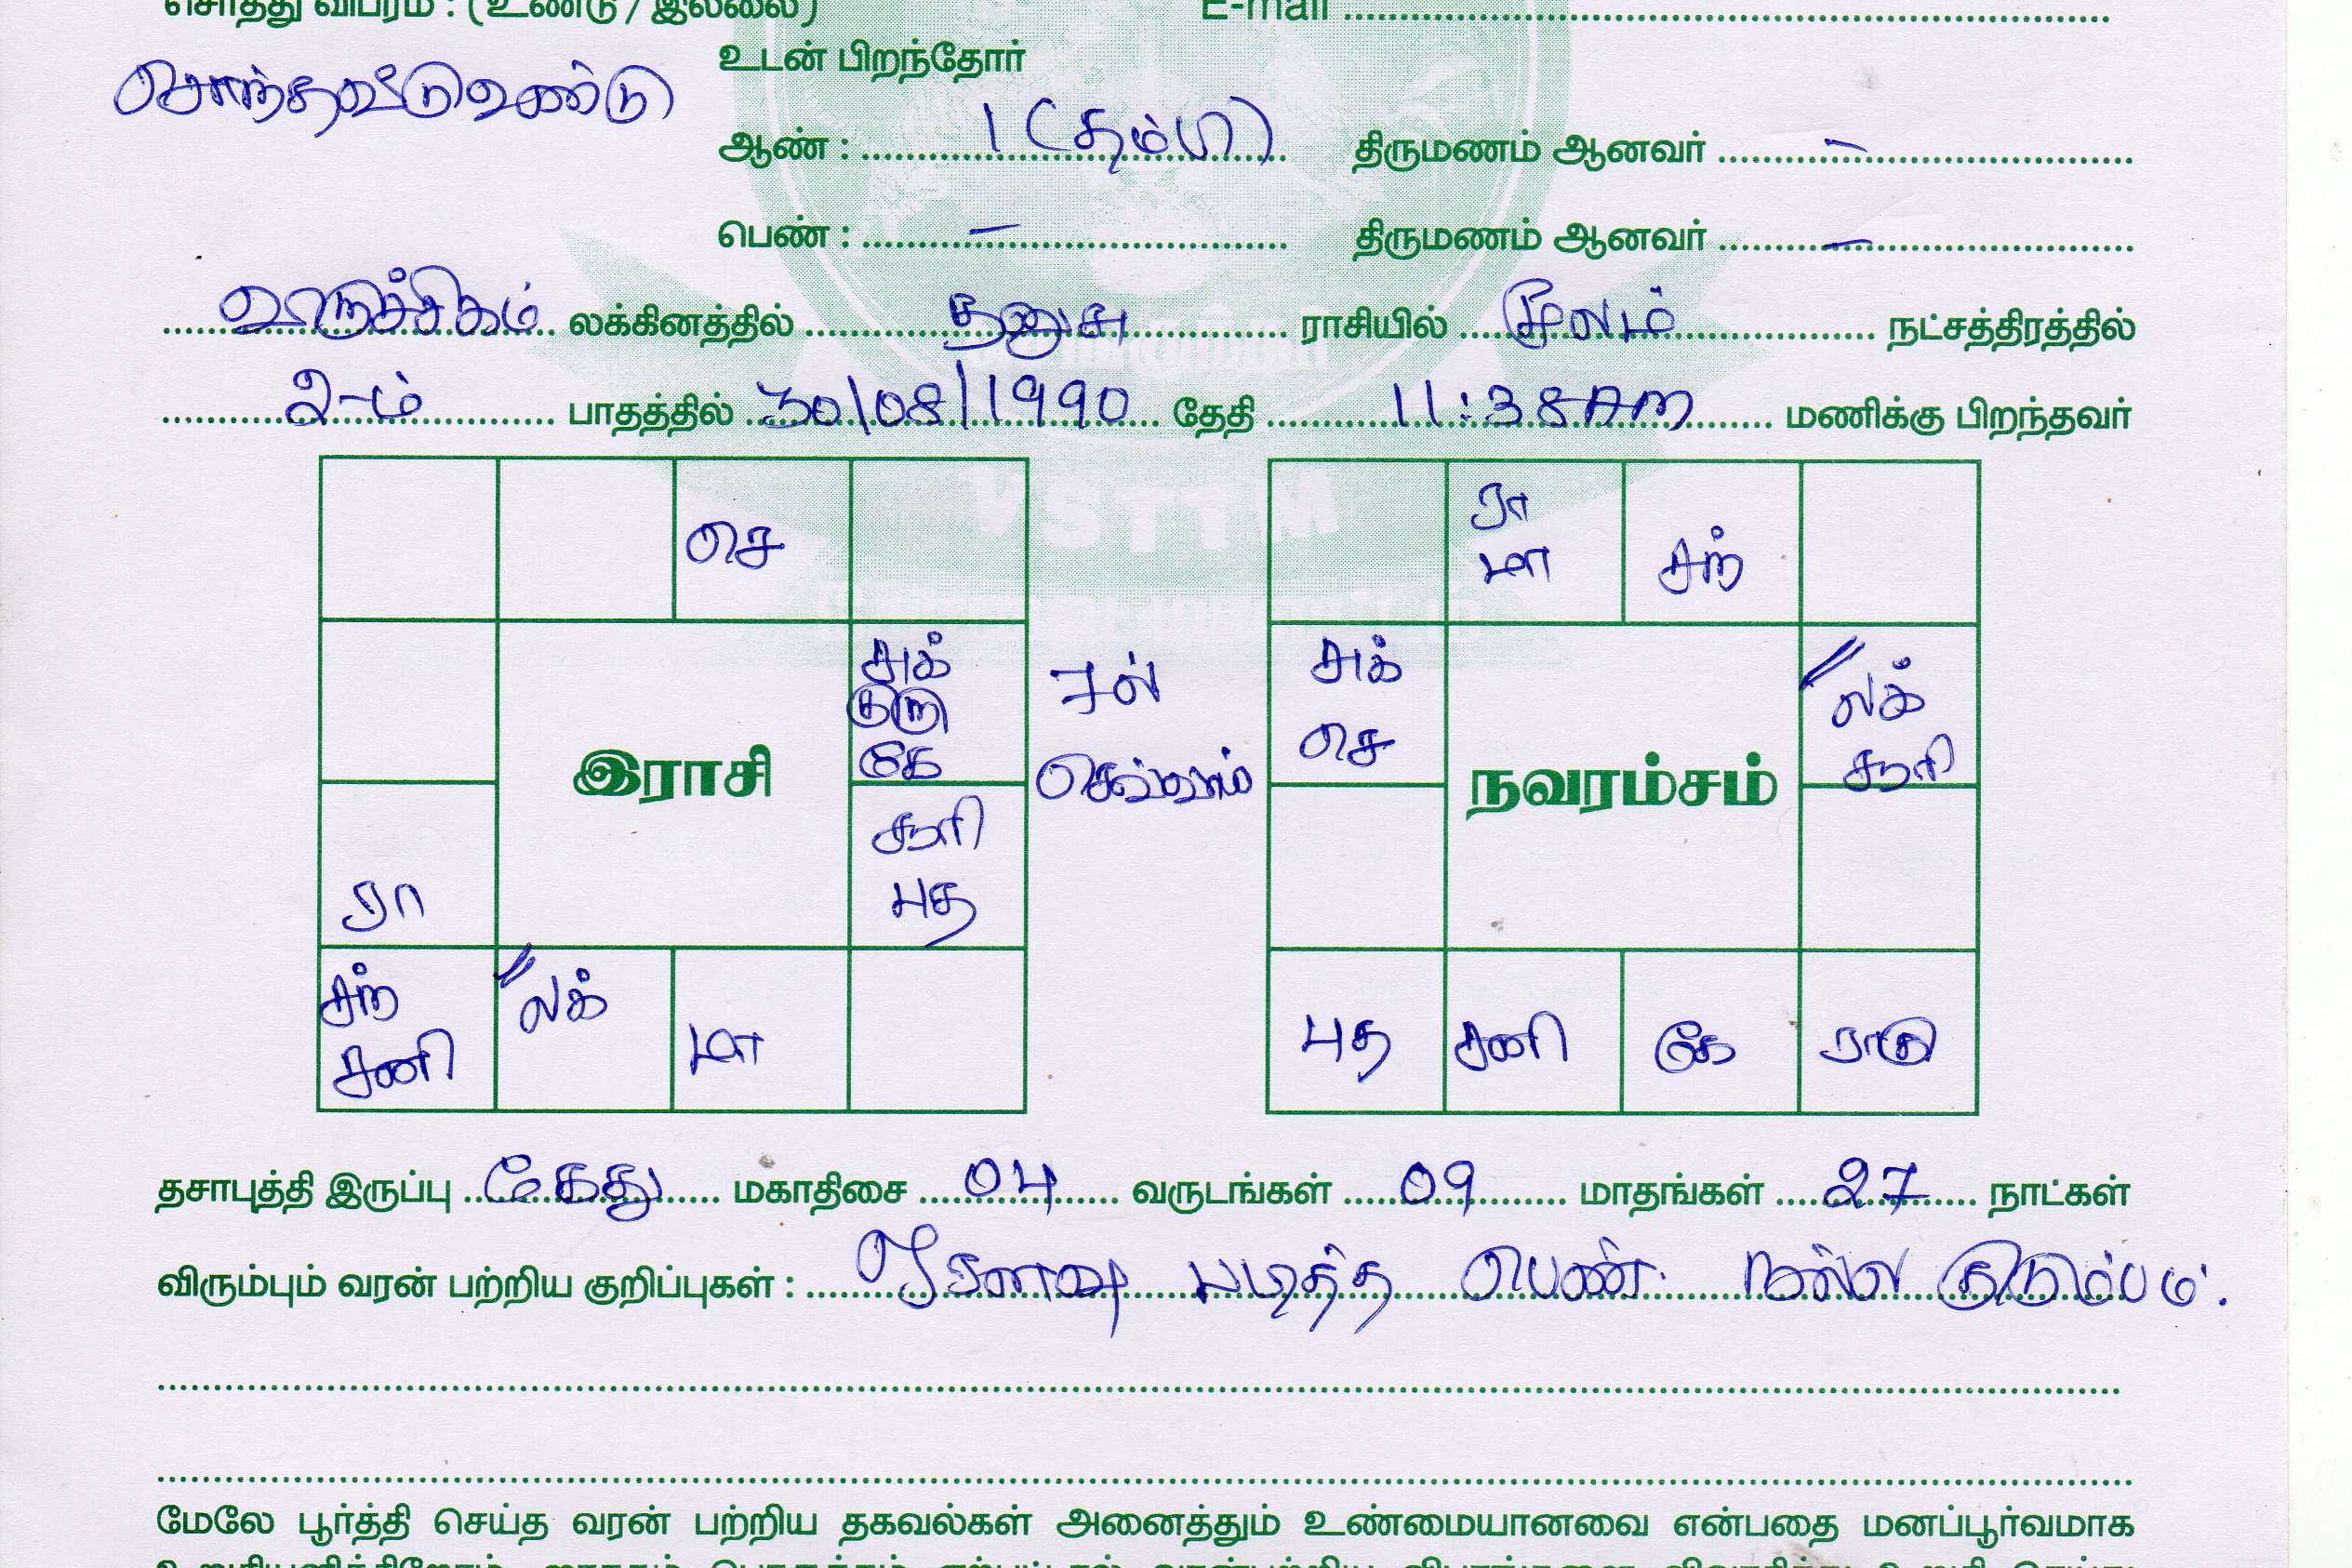 சொத்து விபரம் : (உண்டு / இல்லை) E-mail
உடன் பிறந்தோர்
சொந்தவீடு உண்டு
ஆண் : 1 (தம்பி) திருமணம் ஆனவர் –
பெண் : – திருமணம் ஆனவர் –
விருச்சிகம் லக்கினத்தில் தனுசு ராசியில் மூலம் நட்சத்திரத்தில்
2-ம் பாதத்தில் 30/08/1990 தேதி 11:38 AM மணிக்கு பிறந்தவர்
VSTTM
செ
ரா
மா
சந்
சுக்
குரு
கே
7ல்
செவ்வாய்
சுக்
செ
லக்
சூரி
இராசி
நவரம்சம்
சூரி
புத
ரா
சந்
சனி
லக்
மா
புத
சனி
கே
தசாபுத்தி இருப்பு கேது மகாதிசை 04 வருடங்கள் 09 மாதங்கள் 27 நாட்கள்
விரும்பும் வரன் பற்றிய குறிப்புகள் : படித்த பெண். நல்ல குடும்பம்.
மேலே பூர்த்தி செய்த வரன் பற்றிய தகவல்கள் அனைத்தும் உண்மையானவை என்பதை மனப்பூர்வமாக